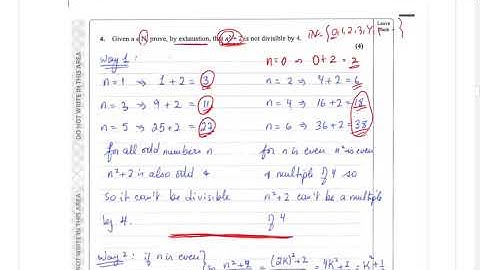 ℕ = {0, 1, 2, 3, 4, ... }
Leave
blank
4. Given n ∈ ℕ, prove, by exhaustion, that n² + 2 is not divisible by 4.
(4)
Way 1:
n=0 ⇒ 0+2 = 2
n=1 ⇒ 1+2 = 3
n=2 ⇒ 4+2 = 6
n=3 ⇒ 9+2 = 11
n=4 ⇒ 16+2 = 18
n=5 ⇒ 25+2 = 27
n=6 ⇒ 36+2 = 38
for all odd numbers n
n²+2 is also odd &
so it can't be divisible
by 4.
for n is even n² is even
& multiple of 4 so
n²+2 can't be a multiple
of 4
Way 2: if n is even
n²+2 = (2k)²+2 = 4k²+2 = k²+1
DO NOT WRITE IN THIS AREA
DO NOT WRITE IN THIS AREA